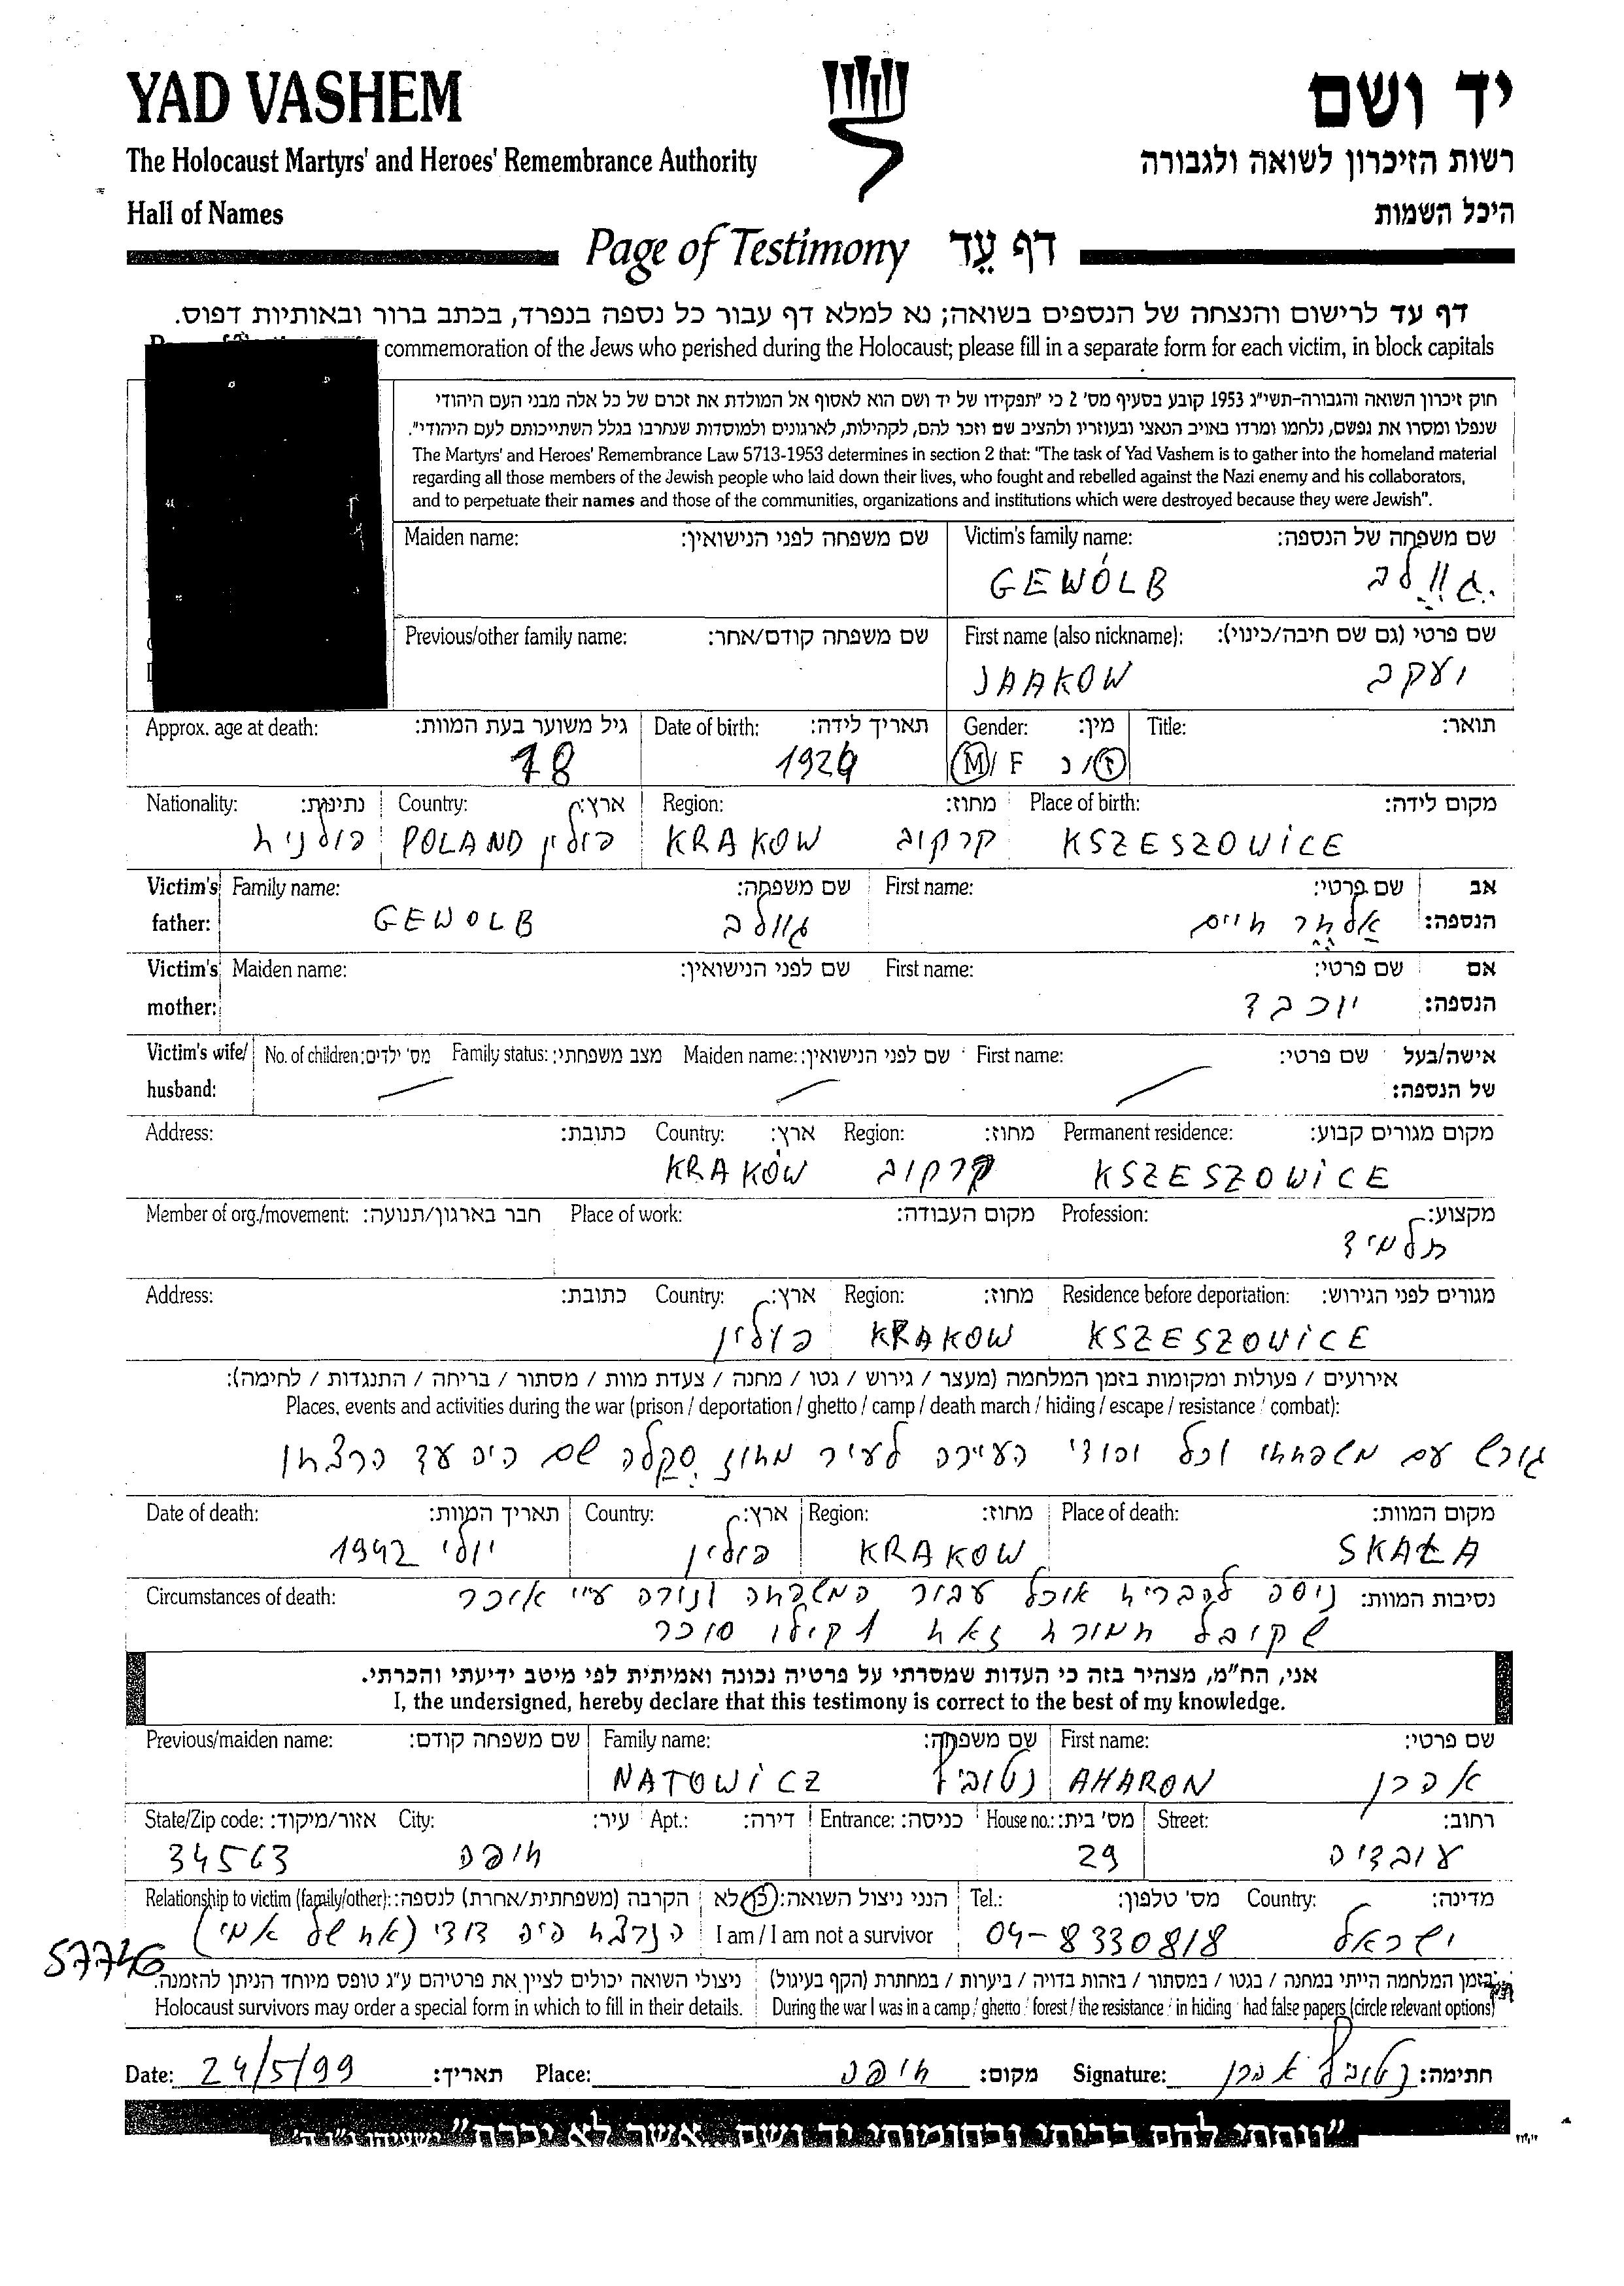 YAD VASHEM יד ושם
The Holocaust Martyrs' and Heroes' Remembrance Authority רשות הזיכרון לשואה ולגבורה
Hall of Names היכל השמות
Page of Testimony דף עֵד
דף עד לרישום והנצחה של הנספים בשואה; נא למלא דף עבור כל נספה בנפרד, בכתב ברור ובאותיות דפוס.
commemoration of the Jews who perished during the Holocaust; please fill in a separate form for each victim, in block capitals
חוק זיכרון השואה והגבורה-תשי"ג 1953 קובע בסעיף מס' 2 כי "תפקידו של יד ושם הוא לאסוף אל המולדת את זכרם של כל אלה מבני העם היהודי
שנפלו ומסרו את נפשם, נלחמו ומרדו באויב הנאצי ובעוזריו ולהציב שם וזכר להם, לקהילות, לארגונים ולמוסדות שנחרבו בגלל השתייכותם לעם היהודי".
The Martyrs' and Heroes' Remembrance Law 5713-1953 determines in section 2 that: "The task of Yad Vashem is to gather into the homeland material
regarding all those members of the Jewish people who laid down their lives, who fought and rebelled against the Nazi enemy and his collaborators,
and to perpetuate their names and those of the communities, organizations and institutions which were destroyed because they were Jewish".
Maiden name: שם משפחה לפני הנישואין: Victim's family name: שם משפחה של הנספה:
GEWÓLB גוולב
Previous/other family name: שם משפחה קודם/אחר: First name (also nickname): שם פרטי (גם שם חיבה/כינוי):
JAAKOW יעקב
Approx. age at death: גיל משוער בעת המוות: Date of birth: תאריך לידה: Gender: מין: Title: תואר:
18 1924 M/ F ז/נ
Nationality: נתינות: Country: ארץ: Region: מחוז: Place of birth: מקום לידה:
פולנית POLAND פולין KRAKOW קרקוב KSZESZOWICE
Victim's Family name: שם משפחה: First name: שם פרטי: אב
father: GEWOLB גוולב אלתר חיים הנספה:
Victim's Maiden name: שם לפני הנישואין: First name: שם פרטי: אם
mother: יוכבד הנספה:
Victim's wife/ No. of children: מס' ילדים: Family status: מצב משפחתי: Maiden name: שם לפני הנישואין: First name: שם פרטי: אישה/בעל
husband: של הנספה:
Address: כתובת: Country: ארץ: Region: מחוז: Permanent residence: מקום מגורים קבוע:
KRAKÓW קרקוב KSZESZOWICE
Member of org./movement: חבר בארגון/תנועה: Place of work: מקום העבודה: Profession: מקצוע:
תלמיד
Address: כתובת: Country: ארץ: Region: מחוז: Residence before deportation: מגורים לפני הגירוש:
פולין KRAKOW KSZESZOWICE
אירועים / פעולות ומקומות בזמן המלחמה (מעצר / גירוש / גטו / מחנה / צעדת מוות / מסתור / בריחה / התנגדות / לחימה):
Places, events and activities during the war (prison / deportation / ghetto / camp / death march / hiding / escape / resistance / combat):
גורש עם משפחתו וכל יהודי העיירה לעיר מחוז סקלה שם היה עד הרצחו
Date of death: תאריך המוות: Country: ארץ: Region: מחוז: Place of death: מקום המוות:
יולי 1942 פולין KRAKOW SKAŁA
Circumstances of death: נסיבות המוות: ניסה להבריח אוכל עבור המשפחה ונורה ע"י איכר
שקיבל תמורת זאת 1 קילו סוכר
אני, הח"מ, מצהיר בזה כי העדות שמסרתי על פרטיה נכונה ואמיתית לפי מיטב ידיעתי והכרתי.
I, the undersigned, hereby declare that this testimony is correct to the best of my knowledge.
Previous/maiden name: שם משפחה קודם: Family name: שם משפחה: First name: שם פרטי:
NATOWICZ נטוביץ AHARON אהרן
State/Zip code: אזור/מיקוד: City: עיר: Apt.: דירה: Entrance: כניסה: House no.: מס' בית: Street: רחוב:
34563 חיפה 29 עובדיה
Relationship to victim (family/other): הקרבה (משפחתית/אחרת) לנספה: הנני ניצול השואה: כן/לא Tel.: מס' טלפון: Country: מדינה:
הנרצח היה דודי (אח של אמי) I am / I am not a survivor 04-8330818 ישראל
57746
ניצולי השואה יכולים לציין את פרטיהם ע"ג טופס מיוחד הניתן להזמנה. בזמן המלחמה הייתי במחנה / בגטו / במסתור / בזהות בדויה / ביערות / במחתרת (הקף בעיגול)
Holocaust survivors may order a special form in which to fill in their details. During the war I was in a camp / ghetto / forest / the resistance / in hiding / had false papers (circle relevant options)
Date: 24/5/99 תאריך: Place: חיפה מקום: Signature: נטוביץ אהרן חתימה:
"ונתתי להם בביתי ובחומותי יד ושם... אשר לא יכרת"